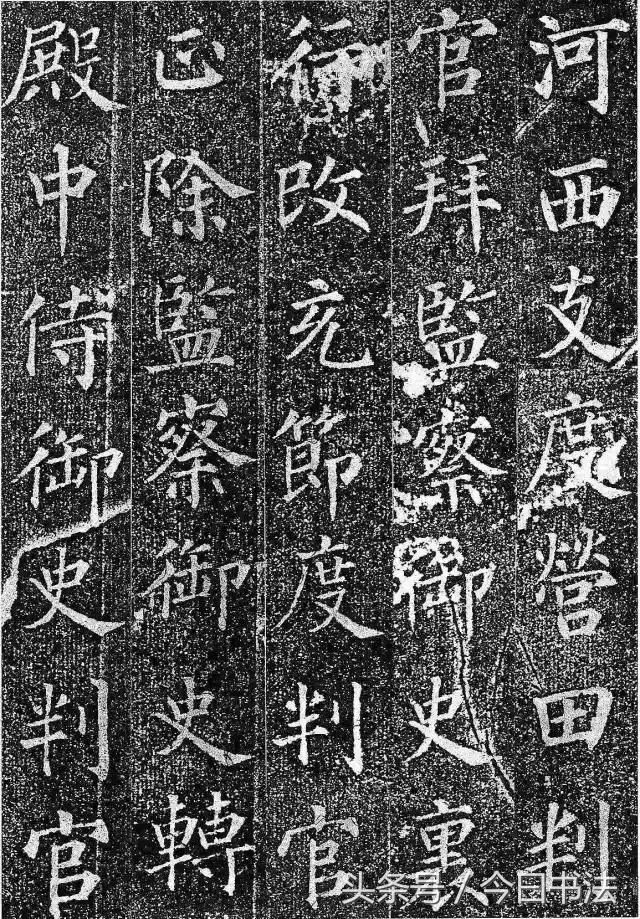 河西支度營田判
官拜監察御史裏
行改充節度判官
正除監察御史轉
殿中侍御史判官
头条号/今日书法